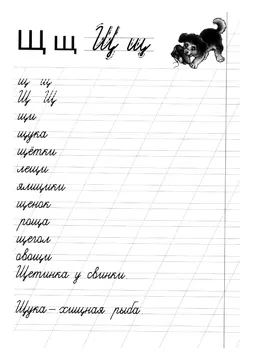 Щ щ Щ щ
щ щ
Щ Щ
щи
щука
щётки
лещи
ямщики
щенок
роща
щегол
овощи
Щетинка у свинки.
Щука – хищная рыба.